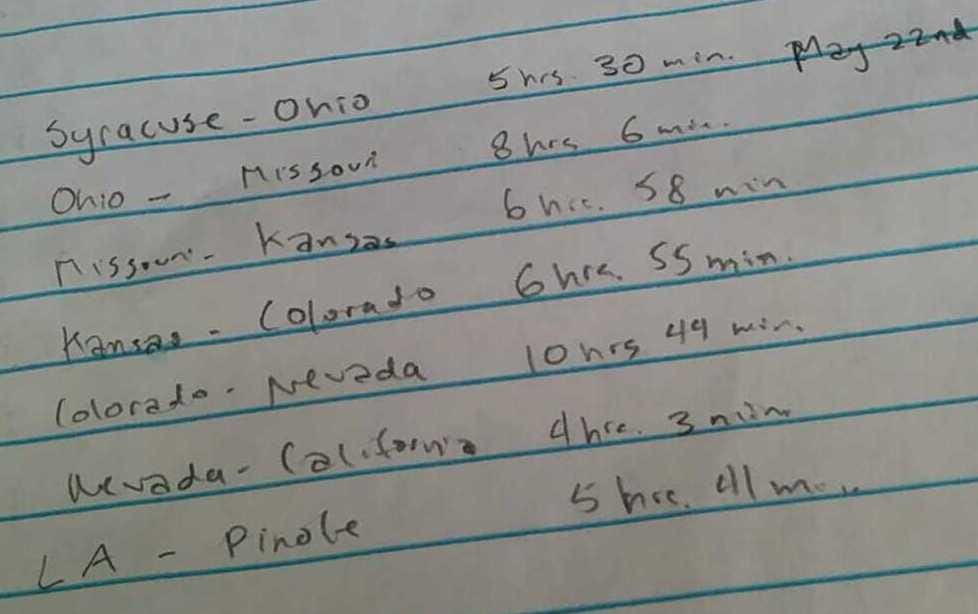 Syracuse - Ohio 5 hrs. 30 min. May 22nd
Ohio - Missouri 8 hrs 6 min.
Missouri - Kansas 6 hrs. 58 min
Kansas - Colorado 6 hrs. 55 min.
Colorado - Nevada 10 hrs 49 min.
Nevada - California 4 hrs. 3 min.
LA - Pinole 5 hrs. 41 min.